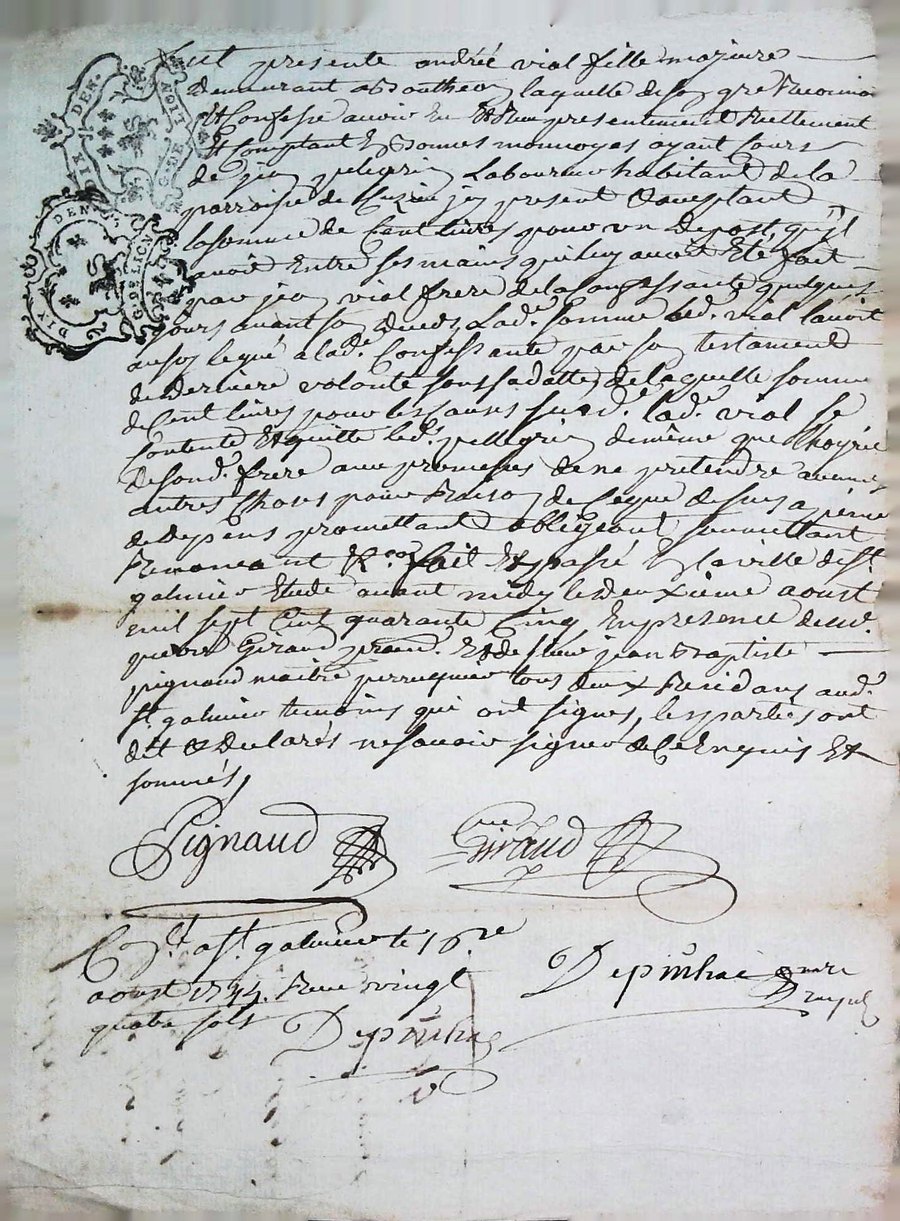 DIX DEN. G. DE NOIT
DIX DEN. G. DE LION
fut presente andréé vial fille majeure
demurant a Bonthéon laquelle de son gre Reconnoi
Et Confesse avoir Eu Et Reçu presentement Reellement
Et Comptant En Bonnes monnoyes ayant Cours
de jean pelegrin Laboureur habitant de la
parroisse de Cuzieu jcy present acceptant
la somme de Cent livres pour un depost, qu'jl
avoit Entre ses mains qui luy avoit Eté fait
par jean vial frere de la Confessante quelques
jours avant son deceds, Lade. somme led. vial lavoit
legué a lade. Confessante par son testament
de derniere volonté sous sa datte, de laquelle somme
de Cent livres pour les causes susd. lade. vial se
Contente Et quitte led. pellegrin de même que lhoyrie
de sond. frere avec promesses de ne pretendre aucunes
autres Choses pour Raison de ce que dessus a peine
de depens promettant obligeant soumettant
Renonceant &c. fait Et passé En la ville de st.
galmier Etude avant midy le deuxieme aoust
mil sept Cent quarante Cinq En presence de me.
Giraud prand. Et de sieur jean Baptiste
pignaud maitre perruquier tous deux Residans aud.
st. galmier temoins qui ont signés, les parties ont
dit & declarés ne savoir signer de Ce Enquis Et
sommés,
Pignaud
Giraud
Con.lé a st. galmier le 16me
aoust 1745. Reçu vingt
quatre sols
Depinhac
Depinhac nore
Royal